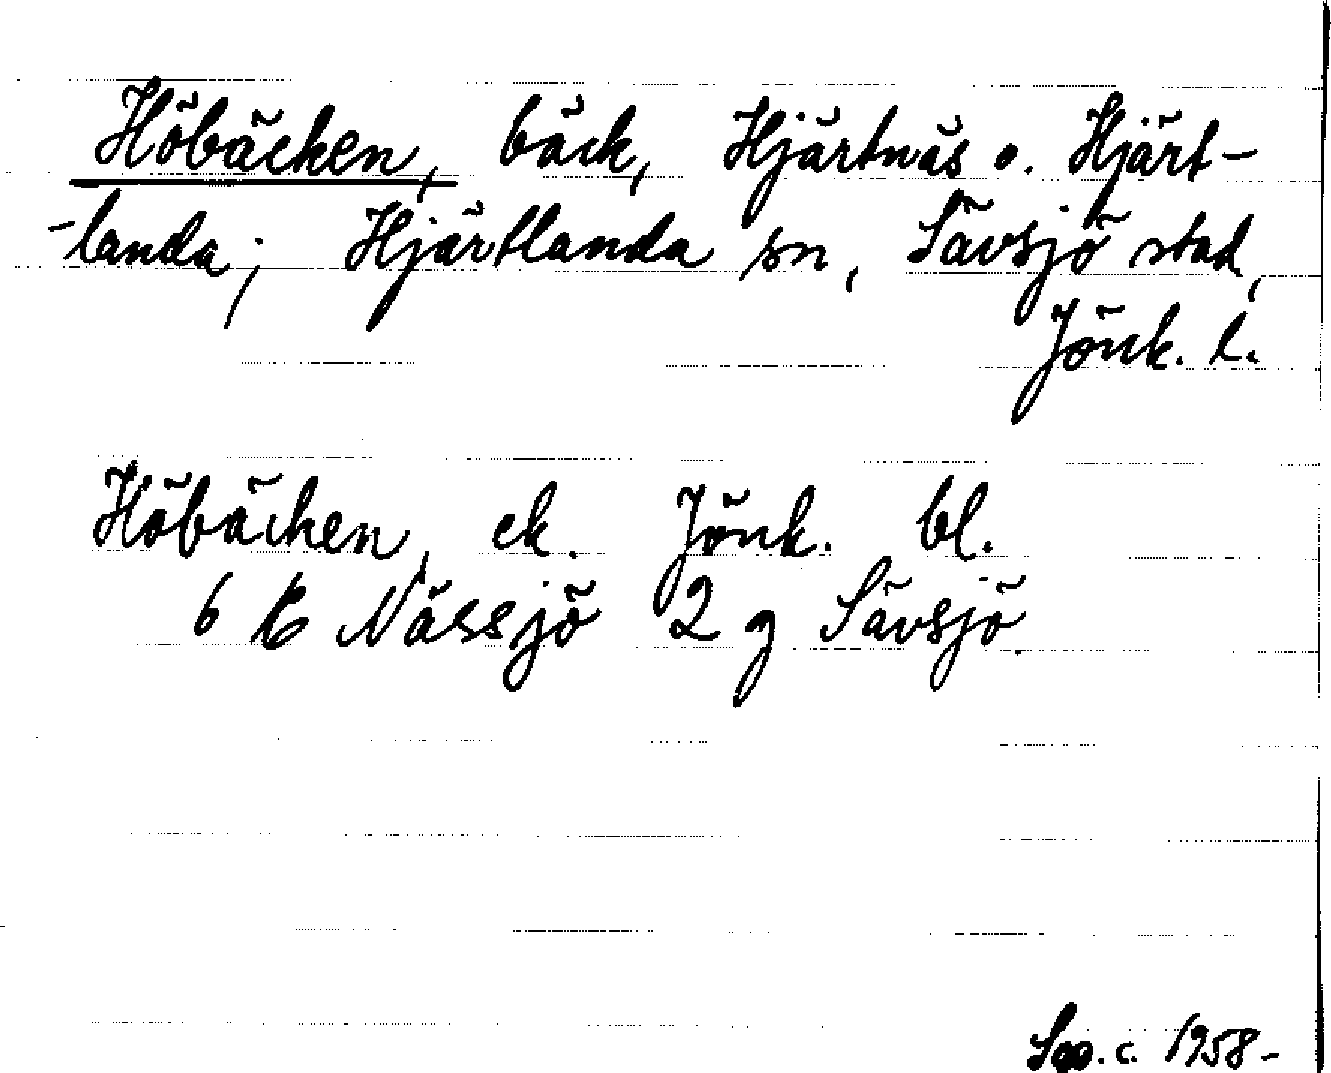 Höbäcken, bäck, Hjärtnäs o. Hjärt-
-landa; Hjärtlanda sn, Sävsjö stad,
Jönk. l.
Höbäcken, ek. Jönk. bl.
6 E Nässjö 2 g Sävsjö.
c. 1958-